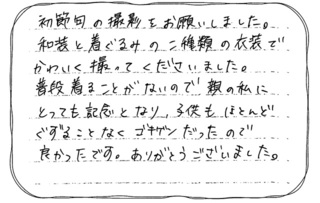 初節句の撮影をお願いしました。
和装と着ぐるみの二種類の衣装で
かわいく撮ってくださいました。
普段着ることがないので親の私に
とっても記念となり、子供もほとんど
ぐずることなくゴキゲンだったので
良かったです。ありがとうございました。